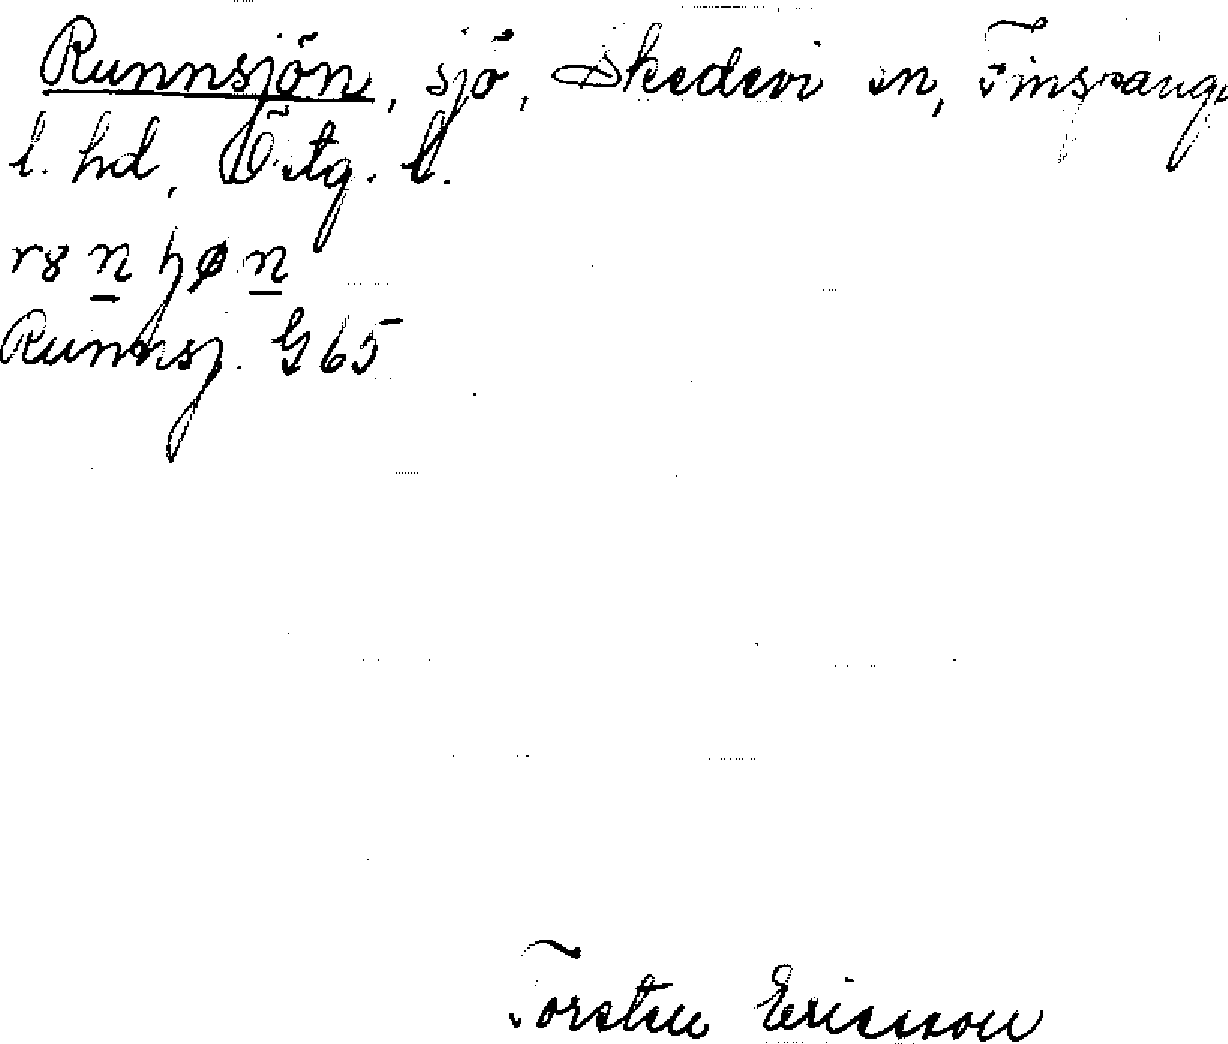 Runnsjön, sjö, Skedevi sn, Finspång
l. hd, Östg. l.
Runnsj. G 65
Torsten Ericsson